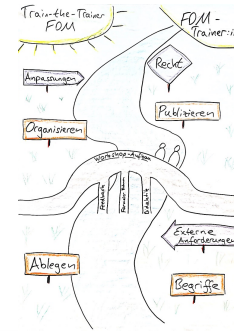 Train-the-Trainer
FDM
FDM-
Trainer:in
Anpassungen
Recht
Publizieren
Organisieren
Workshop-Aufbau
Didaktik
Externe
Anforderungen
Ablegen
Begriffe